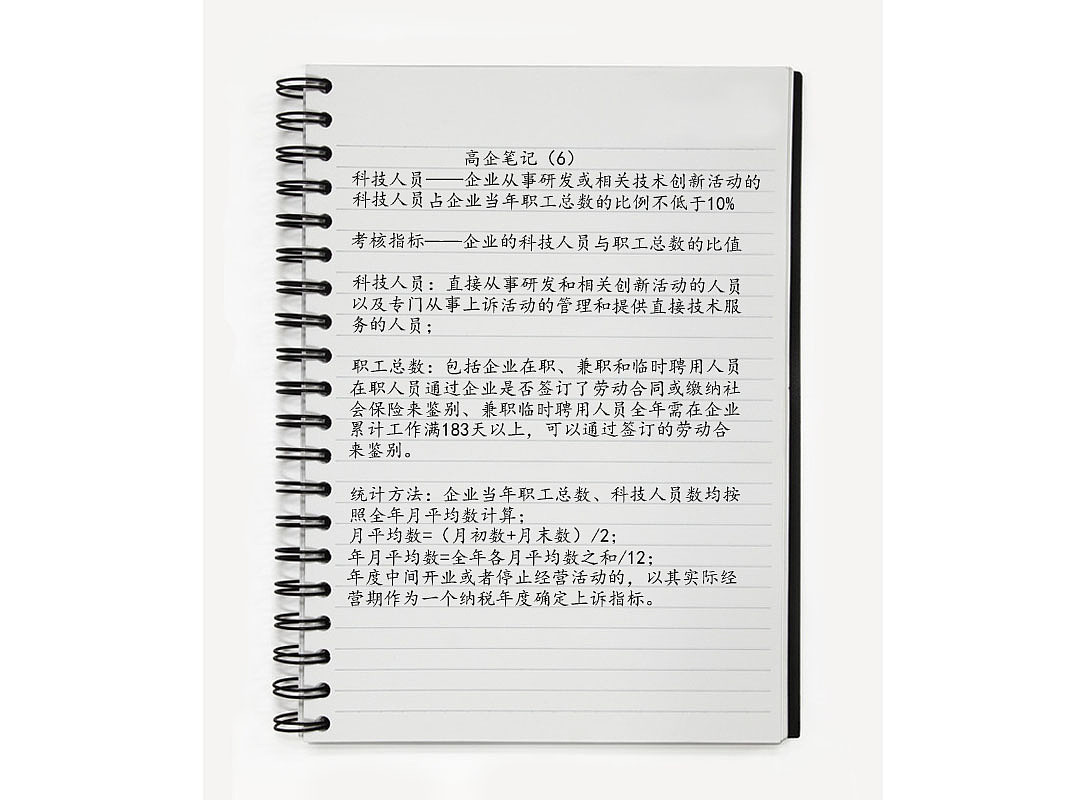 高企笔记（6）
科技人员——企业从事研发或相关技术创新活动的
科技人员占企业当年职工总数的比例不低于10%
考核指标——企业的科技人员与职工总数的比值
科技人员：直接从事研发和相关创新活动的人员
以及专门从事上诉活动的管理和提供直接技术服
务的人员；
职工总数：包括企业在职、兼职和临时聘用人员
在职人员通过企业是否签订了劳动合同或缴纳社
会保险来鉴别、兼职临时聘用人员全年需在企业
累计工作满183天以上，可以通过签订的劳动合
来鉴别。
统计方法：企业当年职工总数、科技人员数均按
照全年月平均数计算；
月平均数=（月初数+月末数）/2；
年月平均数=全年各月平均数之和/12；
年度中间开业或者停止经营活动的，以其实际经
营期作为一个纳税年度确定上诉指标。